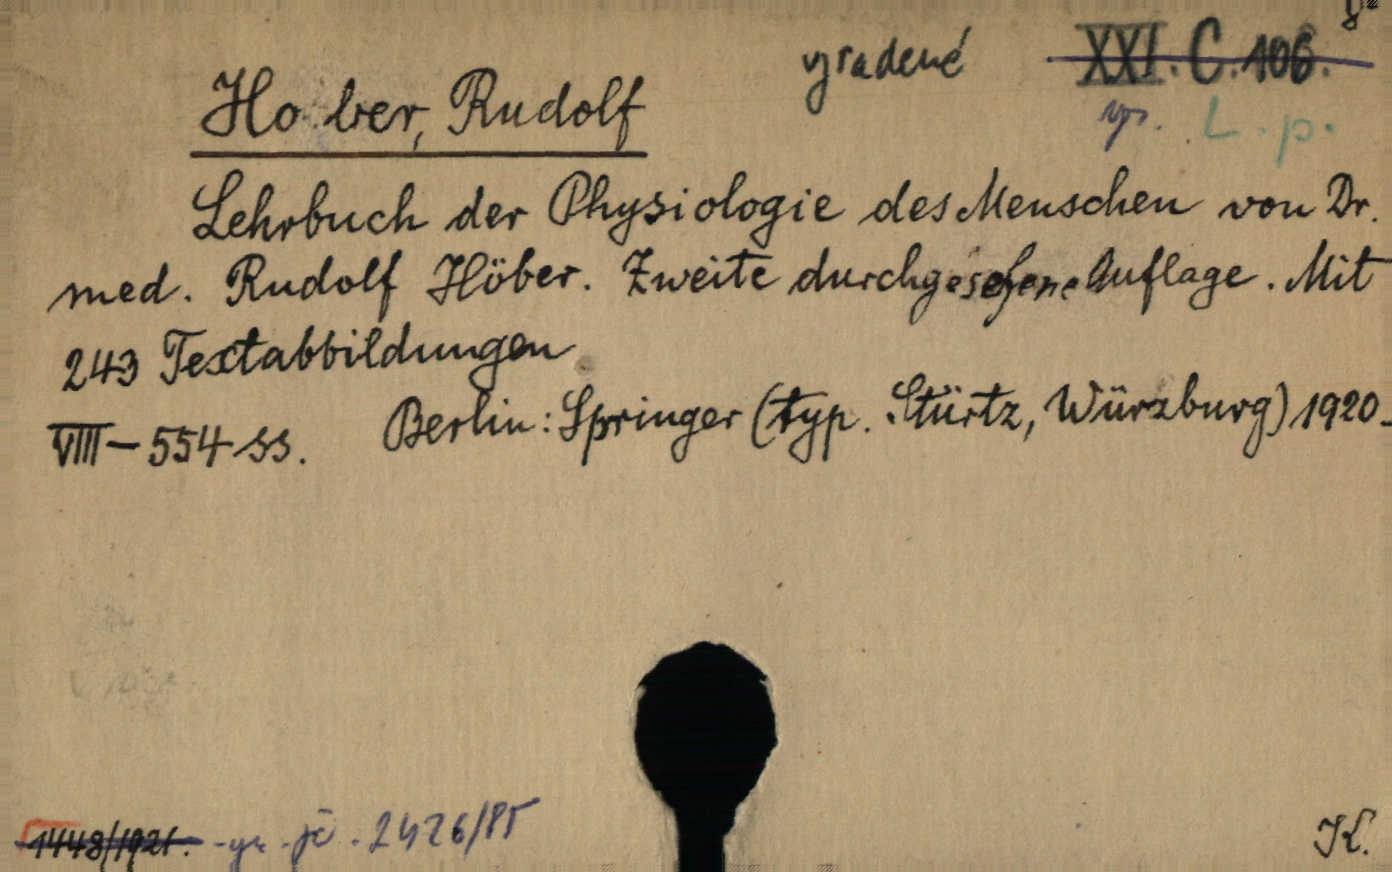 8°
vyradené XXI. C. 106.
vyr. L. p.
Ho ber, Rudolf
Lehrbuch der Physiologie des Menschen von Dr.
med. Rudolf Höber. Zweite durchgesehene Auflage. Mit
243 Textabbildungen
Berlin: Springer (typ. Stürtz, Würzburg) 1920.
VIII — 554 ss.
1448/1921. - vyr. jč. 2426/85
K.